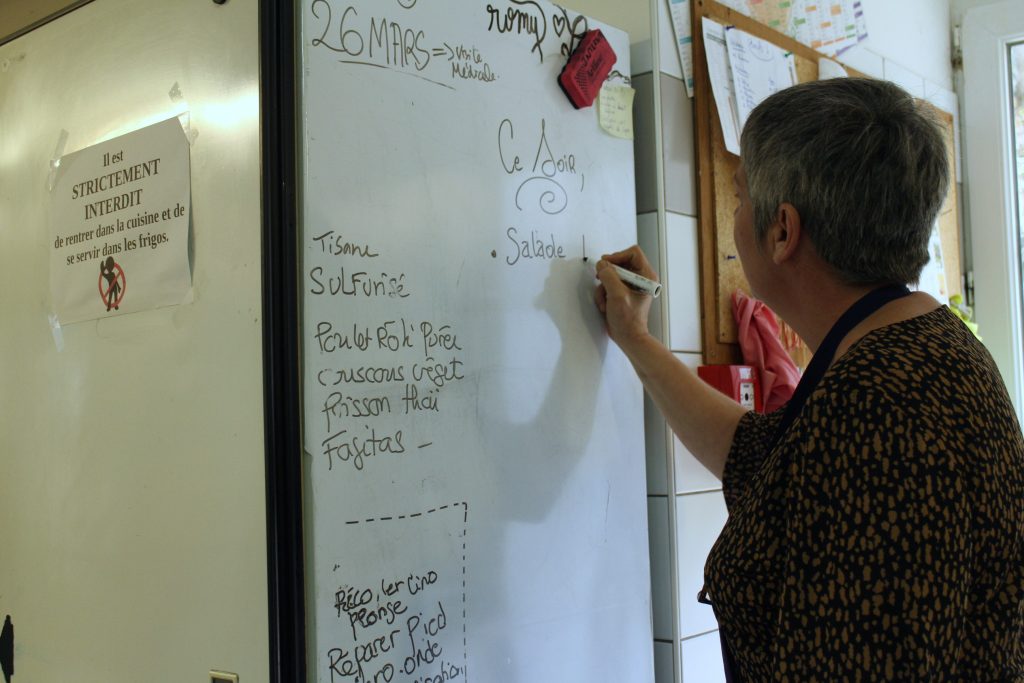 Il est
STRICTEMENT
INTERDIT
de rentrer dans la cuisine et de
se servir dans les frigos.
26 MARS => visite
Médicale.
romy
Ce Soir,
• Salade
Tisane
SULFurisé
Poulet Rôti Purée
couscous véget
Poisson thaï
Fajitas –
plonge
Réparer Pied
onde